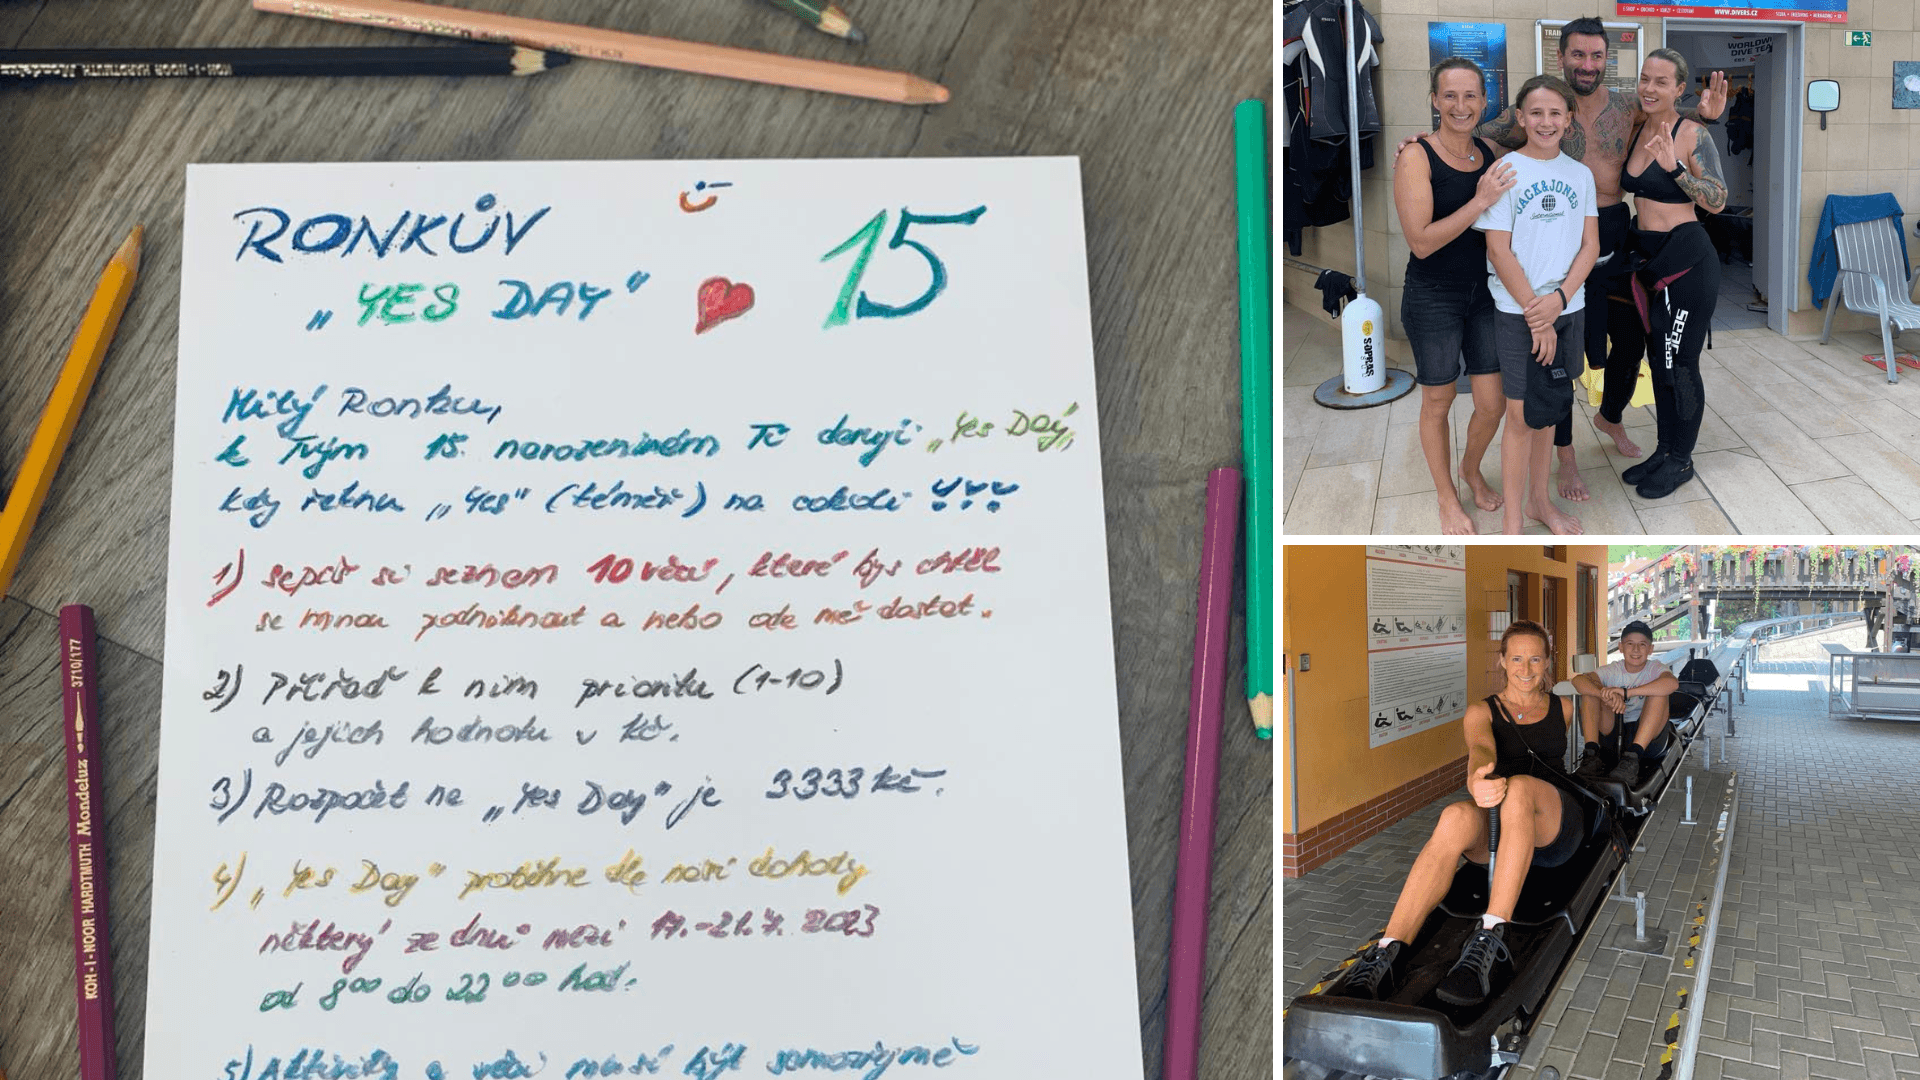 RONKŮV
„YES DAY“
15
Milý Ronku,
k Tvým 15. narozeninám Ti daruji „Yes Day,
kdy řeknu „Yes“ (téměř) na cokoli !!!
1) Sepiš si seznam 10 věcí, které bys chtěl
se mnou podniknout a nebo ode mě dostat.
2) Přiřaď k nim prioritu (1-10)
a jejich hodnotu v Kč.
3) Rozpočet na „Yes Day“ je 3333 Kč.
4) „Yes Day“ proběhne dle naší dohody
některý ze dnů mezi 17.-21.7. 2023
od 8⁰⁰ do 22⁰⁰ hod.
5) Aktivity a věci musí být samozřejmě
KOH-I-NOOR HARDTMUTH Mondeluz 3710/177
KOH-I-NOOR HARDTMUTH
WWW.DIVERS.CZ
WORLDW
DIVE TEA
SSI
JACK & JONES
International
SOPRAS
seac